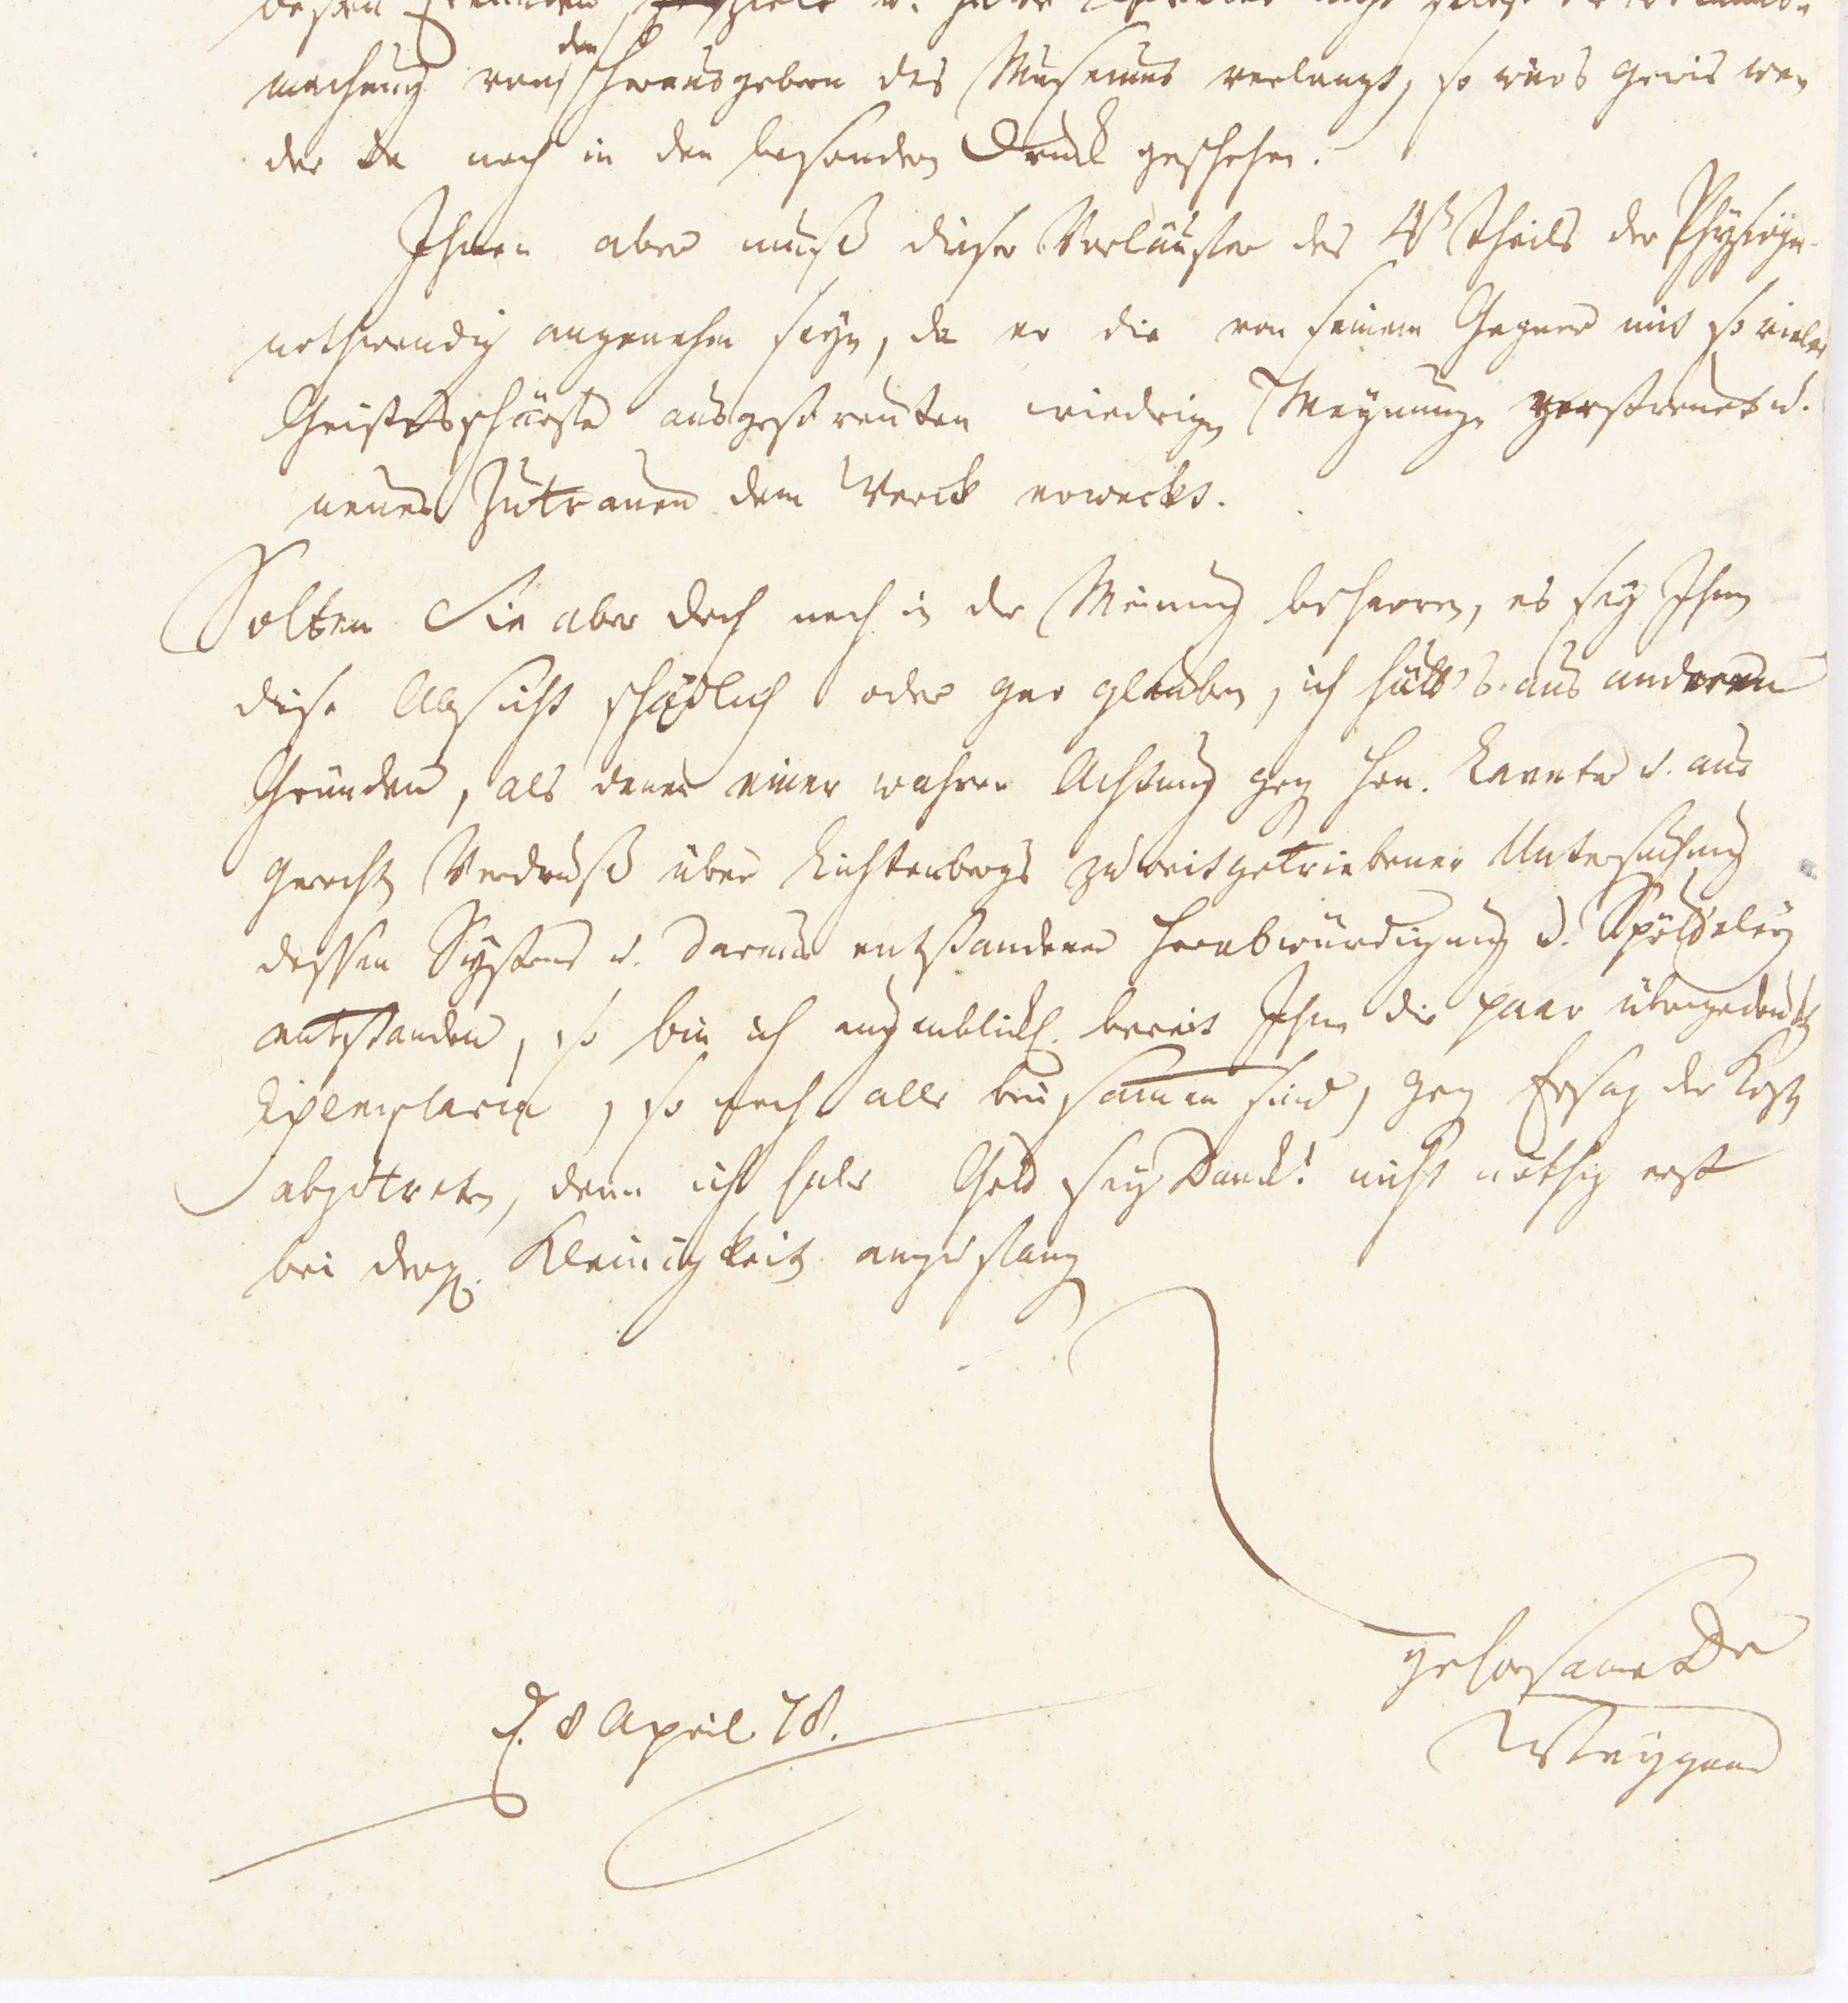 machung von den Herausgebern des Museums verlangt, so wärs gewis we-
der da noch in den besondern Druck geschehen.
Ihnen aber muß dieser Vorläufer des 4t Theils der Physiogn.
nothwendig angenehm seyn, da er die von seinem Gegner mit so vieler
Geistesschärfe ausgestreuten wiedrigen Meynungen zerstreuet u.
neues Zutrauen dem Werck erweckt.
Solten Sie aber doch noch in der Meinung beharren, es sey Ihnen
diese Absicht schädlich oder gar glauben, ich hätt's aus anderen
Gründen, als denen einer wahren Achtung gegen Hrn. Lavater u. aus
gerechten Verdruß über Lichtenbergs zuweitgetriebener Untersuchung
dessen Systems u. daraus entstandener Herabwürdigung u. Spötteley
entstanden, so bin ich augenblickl. bereit Ihnen die paar übergedruckten
Exemplaria, so noch alle beisammen sind, gegen Ersaz der Kosten
abzutreten, denn ich habe Gott sey Danck! nicht nöthig erst
bei dergl. Kleinigkeiten anzufangen
gehorsamster Dr
Weygand
d. 8 April 78.